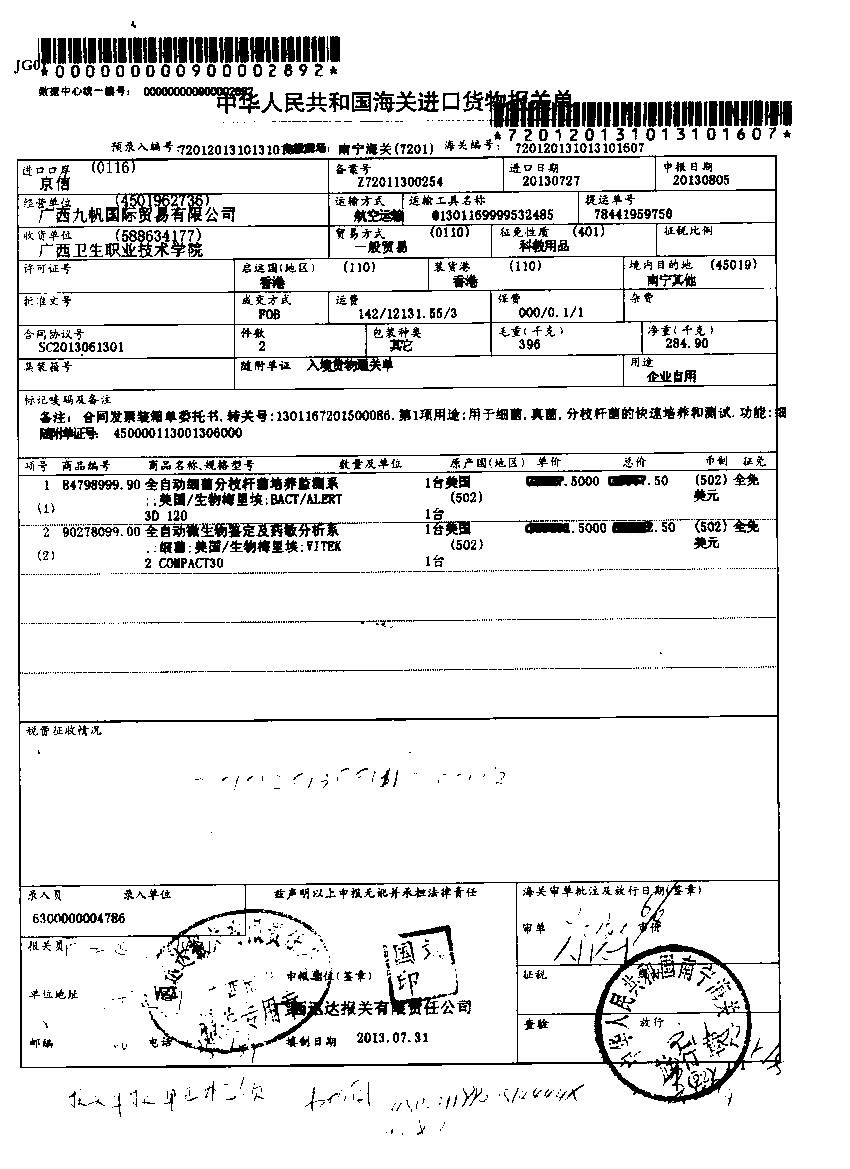 JG01
*000000000900002892*
数据中心统一编号: 000000000900002892
中华人民共和国海关进口货物报关单
*720120131013101607*
预录入编号:72012013101310 南宁海关(7201) 海关编号: 720120131013101607
进口口岸 (0116) 备案号 进口日期 申报日期
京信 Z72011300254 20130727 20130805
经营单位 (4501962736) 运输方式 运输工具名称 提运单号
广西九帆国际贸易有限公司 航空运输 @1301169999532485 78441959750
收货单位 (588634177) 贸易方式 (0110) 征免性质 (401) 征税比例
广西卫生职业技术学院 一般贸易 科教用品
许可证号 启运国(地区) (110) 装货港 (110) 境内目的地 (45019)
香港 香港 南宁其他
批准文号 成交方式 运费 保费 杂费
FOB 142/12131.55/3 000/0.1/1
合同协议号 件数 包装种类 毛重(千克) 净重(千克)
SC2013061301 2 其它 396 284.90
集装箱号 随附单证 入境货物通关单 用途
企业自用
标记唛码及备注
备注: 合同发票装箱单委托书,转关号:1301167201500086.第1项用途:用于细菌,真菌,分枝杆菌的快速培养和测试.功能:细
随附单证号: 450000113001306000
项号 商品编号 商品名称、规格型号 数量及单位 原产国(地区) 单价 总价 币制 征免
1 84798999.90 全自动细菌分枝杆菌培养监测系 1台美国 .5000 .50 (502) 全免
(1) ;;美国/生物梅里埃:BACT/ALERT (502) 美元
3D 120 1台
2 90278099.00 全自动微生物鉴定及药敏分析系 1台美国 .5000 .50 (502) 全免
(2) ;:细菌:美国/生物梅里埃:VITEK (502) 美元
2 COMPACT30 1台
税费征收情况
录入员 录入单位 兹声明以上申报无讹并承担法律责任 海关审单批注及放行日期(签章)
6300000004786
审单 审价
报关员
申报单位(签章)
国文
印
征税
单位地址
迅达报关有限责任公司
专用章
查验 放行
邮编 电话 填制日期 2013.07.31
中华人民共和国南宁海关